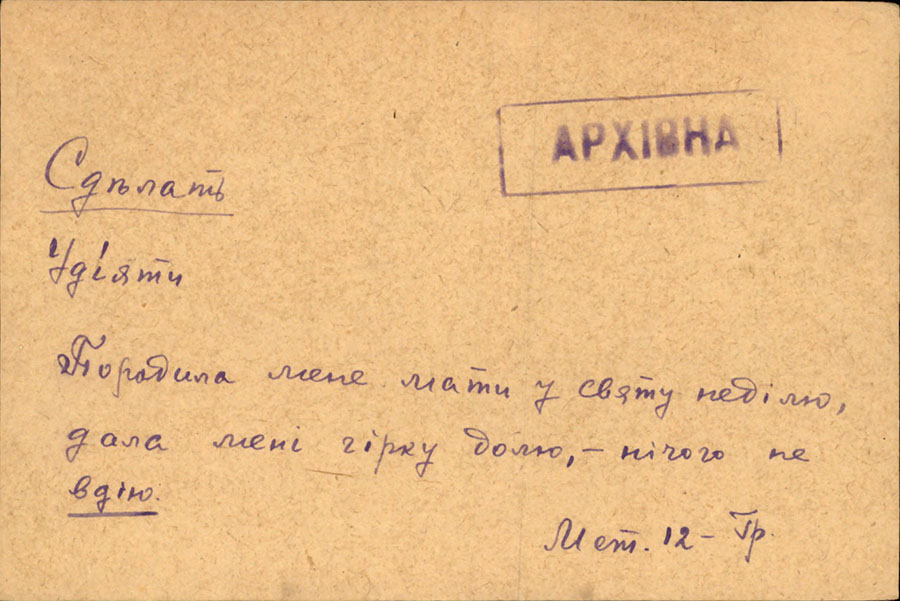 АРХІВНА
Сдѣлать
Удіяти
Породила мене мати у святу неділю,
дала мені гірку долю,– нічого не
вдію.
Мет. 12 – Гр.